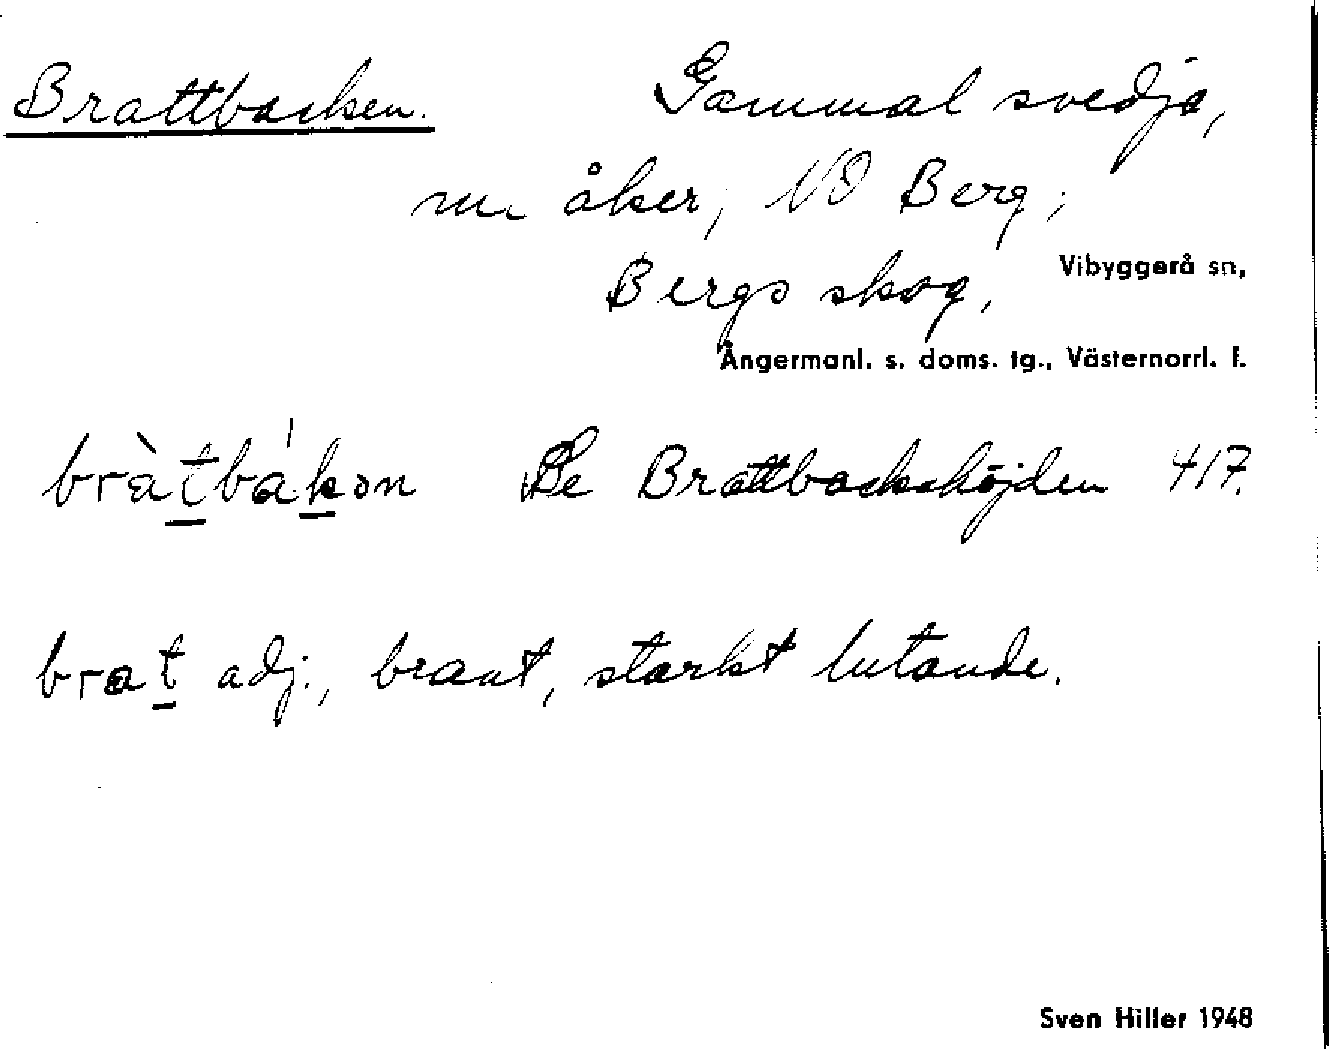 Brattbacken. Gammal svedja,
nu åker, NO Berg;
Bergs skog, Vibyggerå sn,
Ångermanl. s. doms. tg., Västernorrl. l.
bràtbákən Se Brattbackshöjden 417.
brat adj., brant, starkt lutande.
Sven Hiller 1948